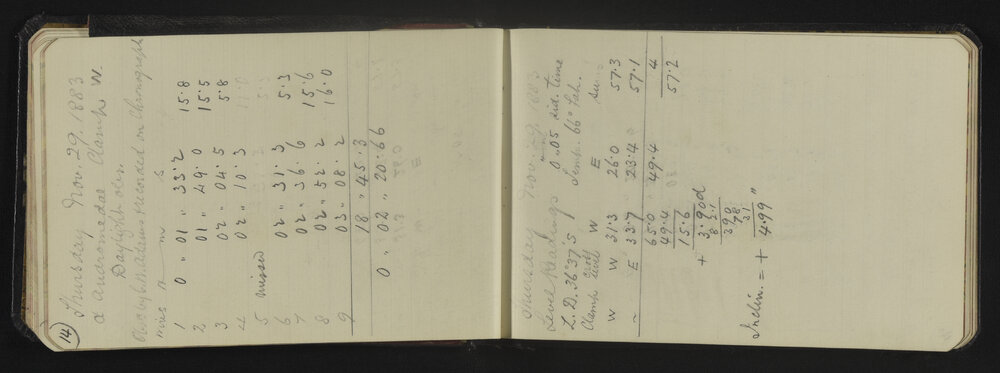 14
Thursday Nov. 29. 1883
α Andromedae Clamp W.
Daylight obsn.
Obs. by C. W. Adams & recorded on Chronograph
wire h m s
1 0 " 01 " 33·2 15·8
2 01 " 49·0 15·5
3 02 " 04·5 5·8
4 02 " 10·3
5 missed
6 02 " 31·3 5·3
7 02 " 36·6 15·6
8 02 " 52·2 16·0
9 03 " 08·2
18 " 45·3
0 " 02 " 20·66
Thursday Nov. 29. 1883
Level Readings 0.05 sid. time
Z.D. 36°37'.5 Temp. 66° Fah.
Clamp Level W E Sums
W W 31·3 26·0 57·3
" E 33·7 23·4 57·1
65·0 49·4 4
49·4 57·2
15·6
+ 3·90d
390
78
31
Inclin. = + 4·99"